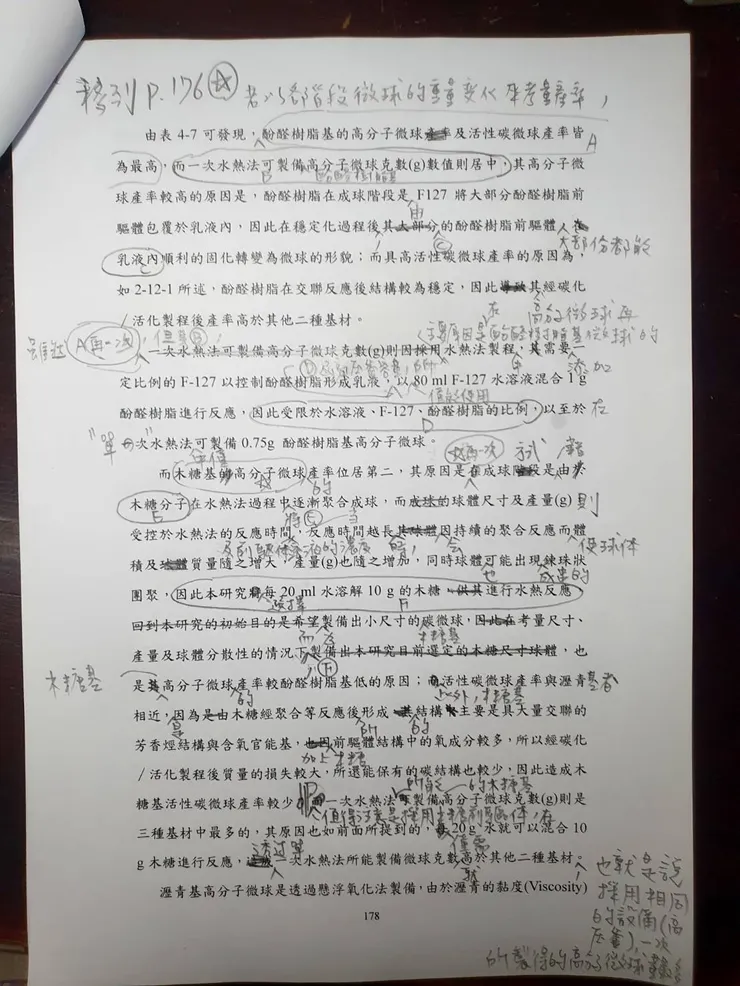 移到 P.176 若以各階段微球的重量變化來考量產率，
由表 4-7 可發現，酚醛樹脂基的高分子微球產率及活性碳微球產率皆 A
為最高，而一次水熱法可製備高分子微球克數(g)數值則居中，其高分子微
B
球產率較高的原因是，酚醛樹脂在成球階段是 F127 將大部分酚醛樹脂前
由
驅體包覆於乳液內，因此在穩定化過程後其大部分的酚醛樹脂前驅體在
C 大部份都能
乳液內順利的固化轉變為微球的形貌；而具高活性碳微球產率的原因為，
如 2-12-1 所述，酚醛樹脂在交聯反應後結構較為穩定，因此導致其經碳化
在 高分子微球再
/活化製程後產率高於其他二種基材。
雖然 A再一次，但是B， 主要原因是酚醛樹脂基微球的
一次水熱法可製備高分子微球克數(g)則因採用水熱法製程，其需要
添加
定比例的 F-127 以控制酚醛樹脂形成乳液，以 80 ml F-127 水溶液混合 1 g
值能使用
酚醛樹脂進行反應，因此受限於水溶液、F-127、酚醛樹脂的比例，以至於在
D
"單一"次水熱法可製備 0.75g 酚醛樹脂基高分子微球。
再一次 方式
而木糖基的高分子微球產率位居第二，其原因是在成球階段是由於
的
木糖分子在水熱法過程中逐漸聚合成球，而成球的球體尺寸及產量(g)則
E 將E 當
受控於水熱法的反應時間，反應時間越長其球體因持續的聚合反應而體
及前驅體溶液的濃度 時， 會 使球體
積及球體質量隨之增大，產量(g)也隨之增加，同時球體可能出現鍊珠狀
也 成串的
團聚，因此本研究將每 20 ml 水溶解 10 g 的木糖，供其進行水熱反應
選擇 F
回到本研究的初始目的是希望製備出小尺寸的碳微球，因此在考量尺寸、
而為 木糖基
產量及球體分散性的情況下製備出本研究目前選定的木糖尺寸球體，也
F
木糖基 是其高分子微球產率較酚醛樹脂基低的原因；而活性碳微球產率與瀝青基者
的 此外，木糖基
相近，因為是由木糖經聚合等反應後形成，其結構主要是具大量交聯的
的
芳香烴結構與含氧官能基，也因前驅體結構中的氧成分較多，所以經碳化
加上木糖
/活化製程後質量的損失較大，所還能保有的碳結構也較少，因此造成木
所能 的木糖基
糖基活性碳微球產率較少。而一次水熱法可製備高分子微球克數(g)則是
值得注意是採用木糖前驅體，在
三種基材中最多的，其原因也如前面所提到的，每 20 g 水就可以混合 10
透過單 僅需
g 木糖進行反應，這些一次水熱法所能製備微球克數高於其他二種基材。
就
瀝青基高分子微球是透過懸浮氧化法製備，由於瀝青的黏度(Viscosity)
178
也就是說
採用相同
的設備(高
压釜)，一次
所製得的高分子微球重量多